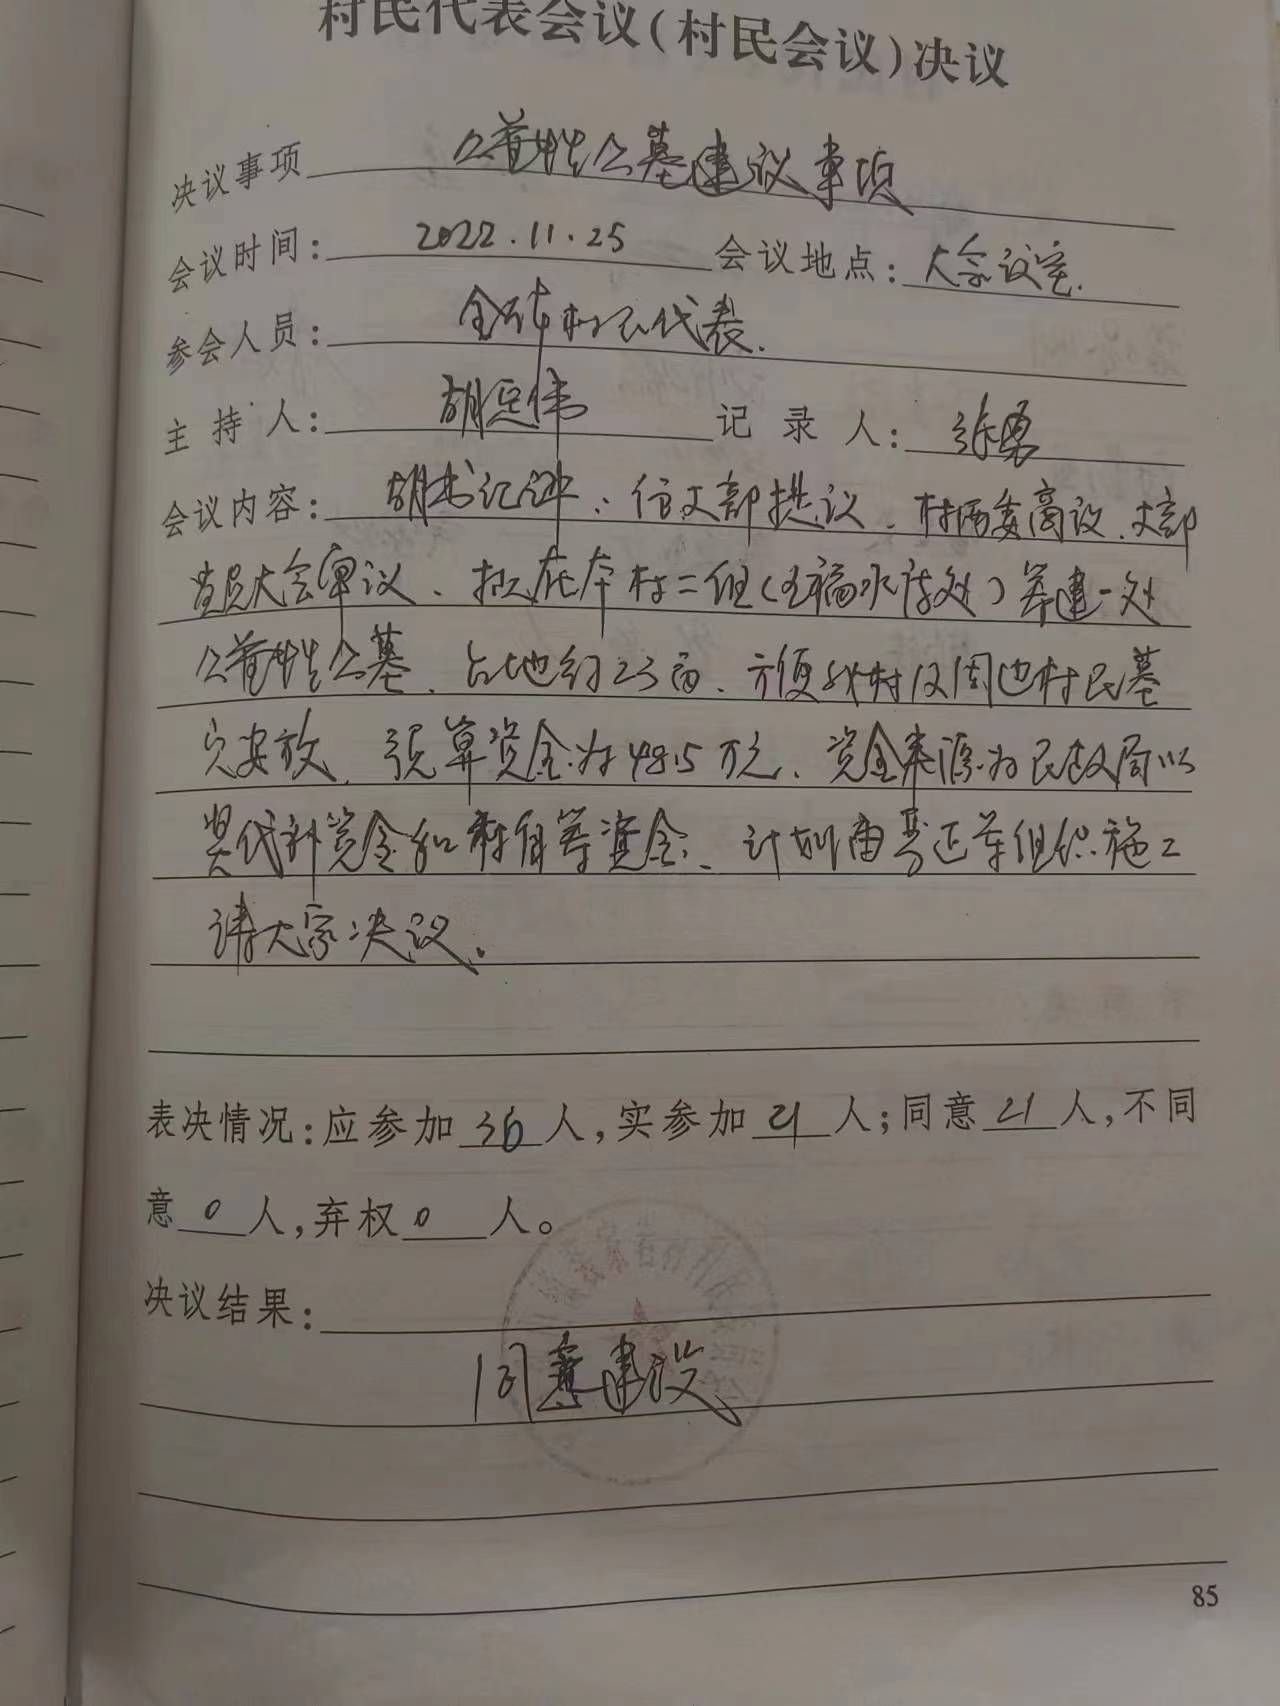 村民代表会议(村民会议)决议
决议事项 公益性公墓建议事项
会议时间: 2022.11.25 会议地点: 大会议室.
参会人员: 全体村民代表.
主持人: 胡 伟 记录人: 张勇
会议内容: 胡书记讲、经支部提议、村两委商议、支部
党员大会审议、拟在本村二组( 福水库处)筹建一处
公益性公墓、占地约23亩、方便我村及周边村民墓
穴安放、预算资金为48.5万元、资金来源为民政局以
奖代补资金和村自筹资金、计划由 组织施工
请大家决议。
表决情况:应参加36人,实参加21人;同意21人,不同
意0人,弃权0人。
决议结果:
同意建设
85